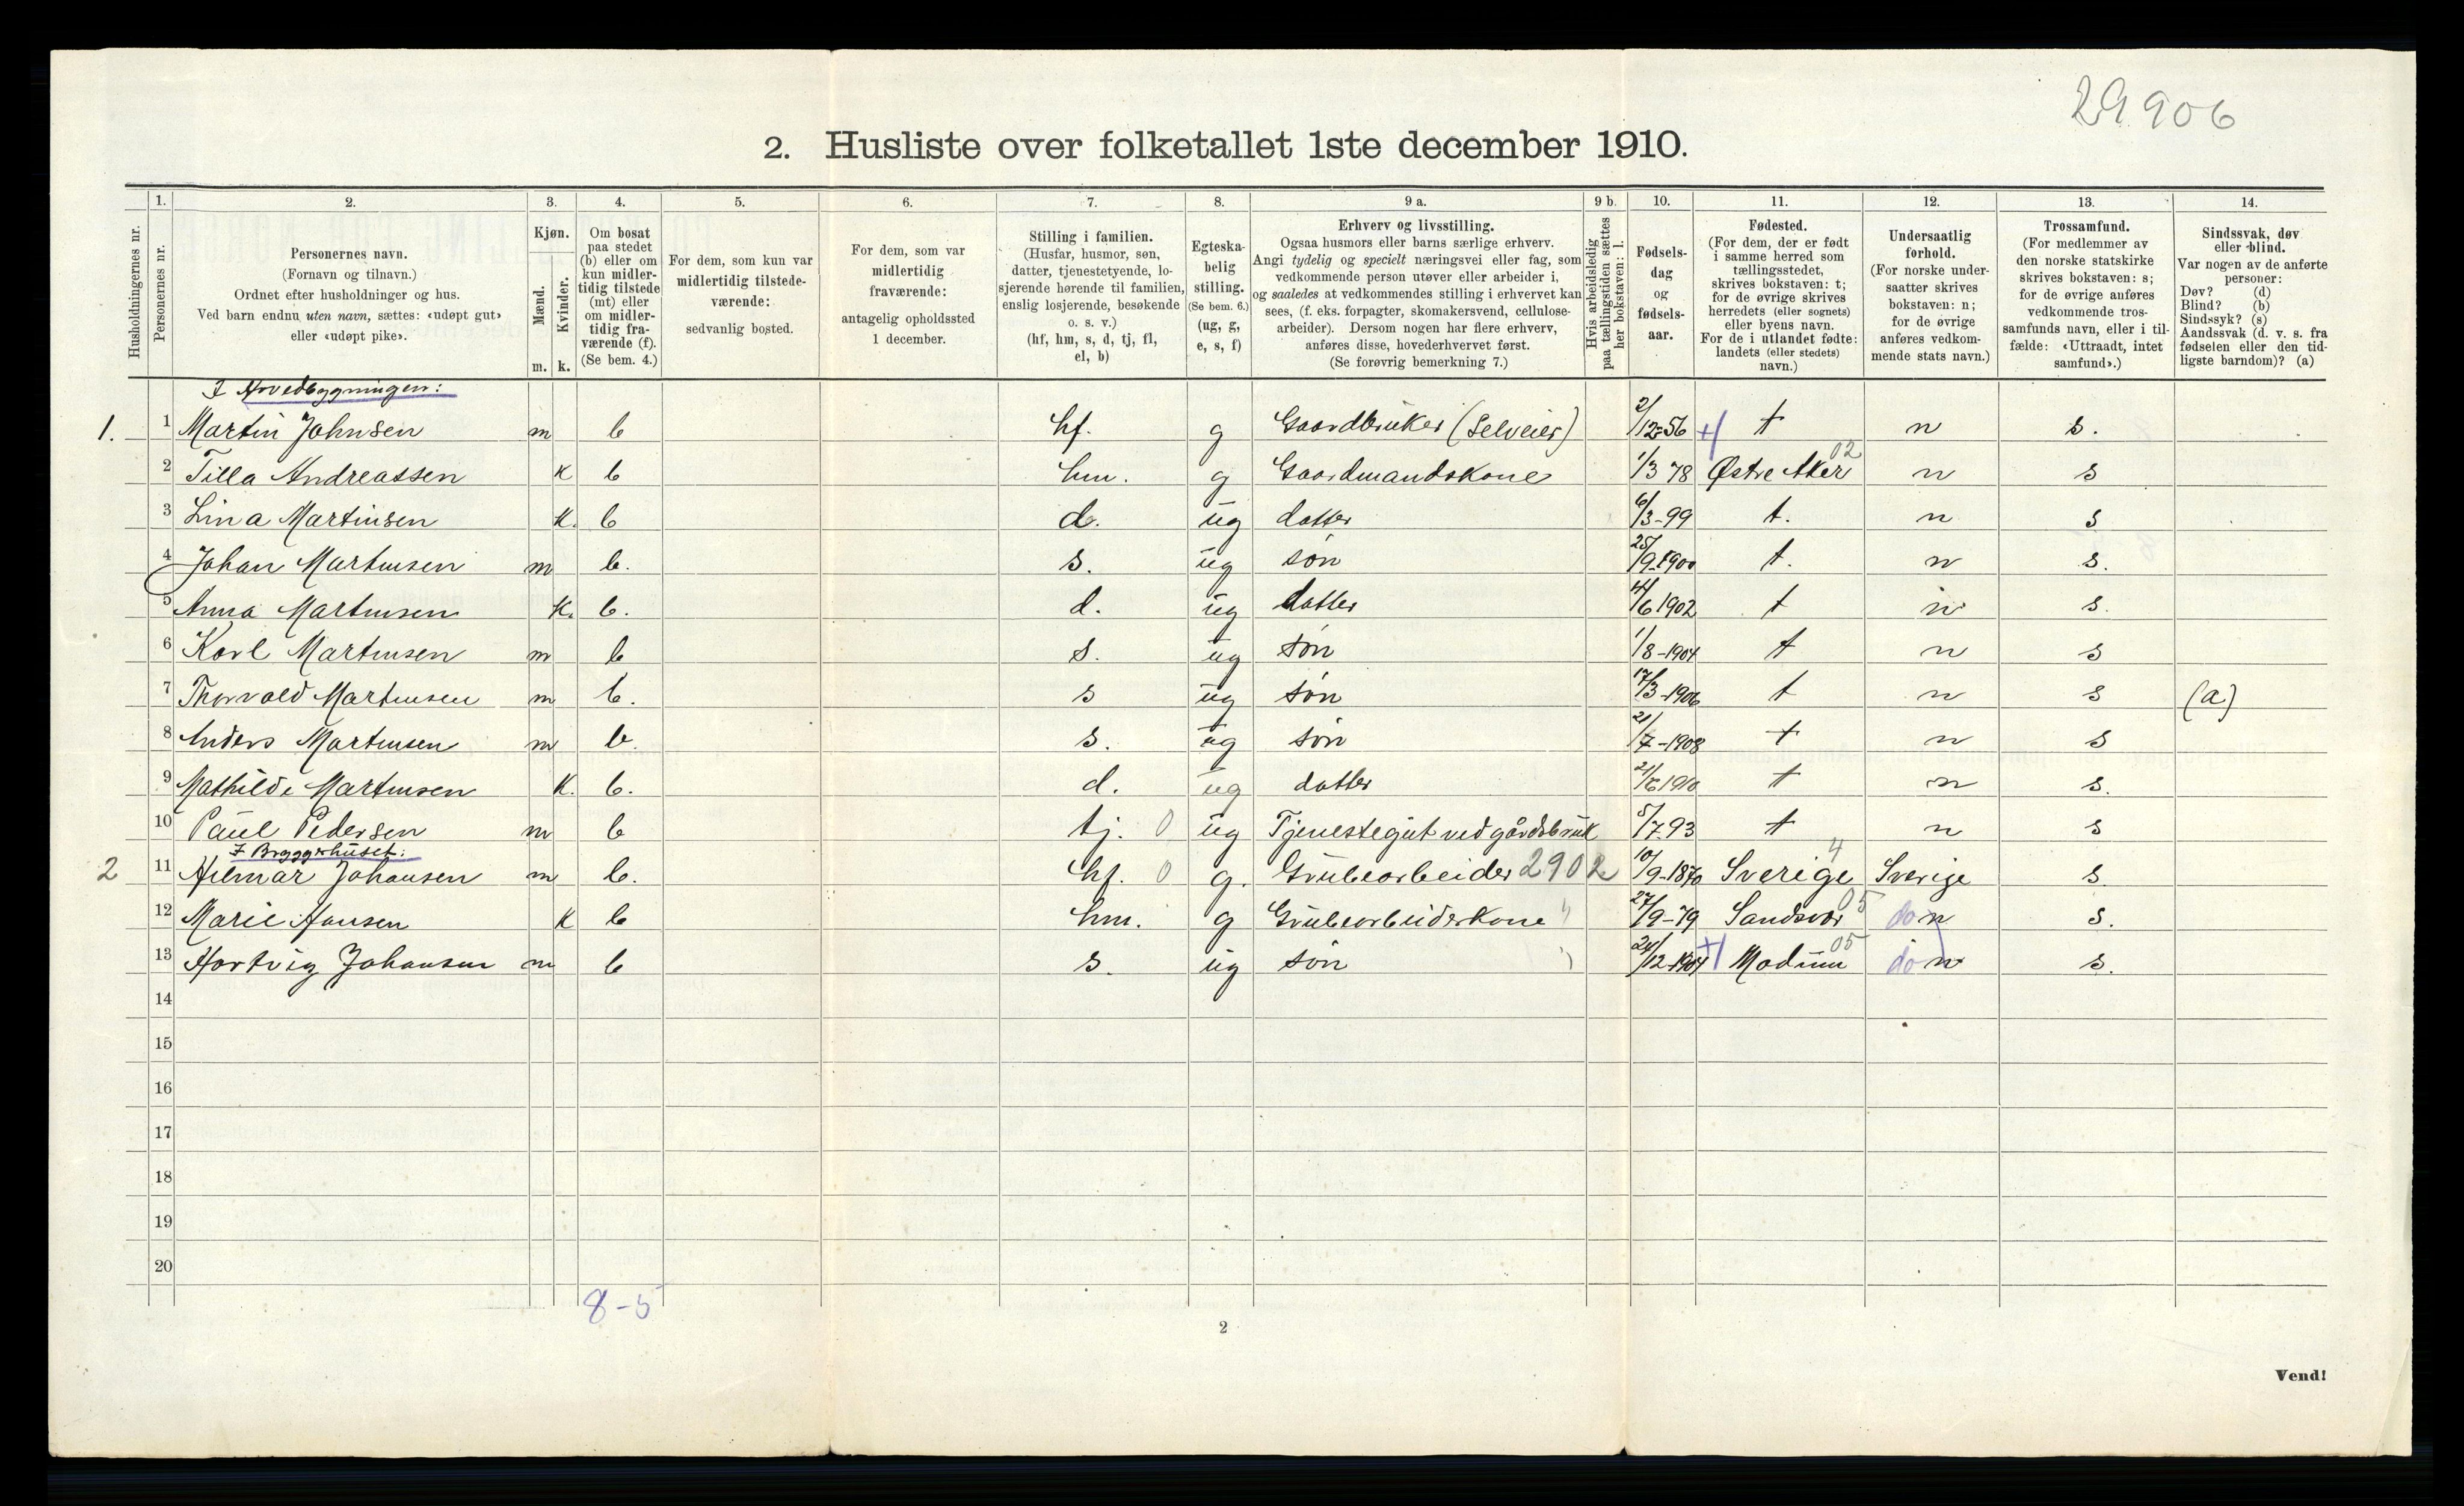 29906
2. Husliste over folketallet 1ste december 1910.
Husholdningernes nr.
1.
Personernes nr.
2.
Personernes navn.
(Fornavn og tilnavn.)
Ordnet efter husholdninger og hus.
Ved barn endnu uten navn, sættes: «udøpt gut»
eller «udøpt pike».
3.
Kjøn.
Mænd.
Kvinder.
m. k.
4.
Om bosat
paa stedet
(b) eller om
kun midler-
tidig tilstede
(mt) eller
om midler-
tidig fra-
værende (f).
(Se bem. 4.)
5.
For dem, som kun var
midlertidig tilstede-
værende:
sedvanlig bosted.
6.
For dem, som var
midlertidig
fraværende:
antagelig opholdssted
1 december.
7.
Stilling i familien.
(Husfar, husmor, søn,
datter, tjenestetyende, lo-
sjerende hørende til familien,
enslig losjerende, besøkende
o. s. v.)
(hf, hm, s, d, tj, fl,
el, b)
8.
Egteska-
belig
stilling.
(Se bem. 6.)
(ug, g,
e, s, f)
9 a.
Erhverv og livsstilling.
Ogsaa husmors eller barns særlige erhverv.
Angi tydelig og specielt næringsvei eller fag, som
vedkommende person utøver eller arbeider i,
og saaledes at vedkommendes stilling i erhvervet kan
sees, (f. eks. forpagter, skomakersvend, cellulose-
arbeider). Dersom nogen har flere erhverv,
anføres disse, hovederhvervet først.
(Se forøvrig bemerkning 7.)
9 b.
Hvis arbeidsledig
paa tællingstiden sættes
her bokstaven: l.
10.
Fødsels-
dag
og
fødsels-
aar.
11.
Fødested.
(For dem, der er født
i samme herred som
tællingsstedet,
skrives bokstaven: t;
for de øvrige skrives
herredets (eller sognets)
eller byens navn.
For de i utlandet fødte:
landets (eller stedets)
navn.)
12.
Undersaatlig
forhold.
(For norske under-
saatter skrives
bokstaven: n;
for de øvrige
anføres vedkom-
mende stats navn.)
13.
Trossamfund.
(For medlemmer av
den norske statskirke
skrives bokstaven: s;
for de øvrige anføres
vedkommende tros-
samfunds navn, eller i til-
fælde: «Uttraadt, intet
samfund».)
14.
Sindssvak, døv
eller blind.
Var nogen av de anførte
personer:
Døv? (d)
Blind? (b)
Sindssyk? (s)
Aandssvak (d. v. s. fra
fødselen eller den tid-
ligste barndom)? (a)
I Hovedbygningen:
1. 1 Martin Johnsen m b hf. g Gaardbruker (Selveier) 2/12-56 t n s.
2 Tilla Andreassen k b hm. g Gaardmandskone 1/3 78 Østre Aker 02 n s
3 Lina Martinsen k. b d. ug datter 6/3-99 t. n s
4 Johan Martinsen m b. s. ug søn 25/9-1900 t. n s.
5 Anna Martinsen k. b. d. ug datter /6 1902 t n s.
6 Karl Martinsen m b s. ug søn 1/8-1904 t n s
7 Thorvald Martinsen m b. s ug søn 17/3-1906 t n s (a)
8 Anders Martinsen m b. s. ug søn 21/7-1908 t n s
9 Mathilde Martinsen k. b. d. ug datter 21/6 1910 t n s.
10 Paul Pedersen m b tj. 0 ug Tjenestegut ved gårdsbruk 5/7.93 t n s
I Bryggerhuset:
2 11 Hilmar Johansen m b. hf. 0 g. Grubearbeider 2902 10/9-1870 Sverige 4 Sverige s.
12 Marie Hansen k b hm. g Grubearbeiderkone 27/9-79 Sandsvær 05 do n s.
13 Hartvig Johansen m b s. ug søn 24/12-1904 Modum 05 do n s.
14
15
16
17
18
19
20
8-5
2
Vend!